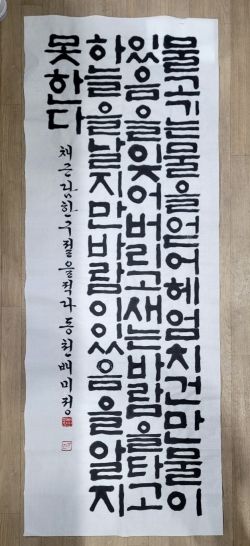 물고기는물을얻어헤엄치건만물이
있음을잊어버리고새는바람을타고
하늘을날지만바람이있음을알지
못한다
채근담한구절을적다 등천배미정